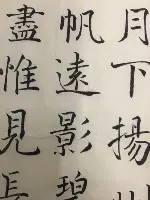 月下揚州
帆遠影碧
盡惟見長